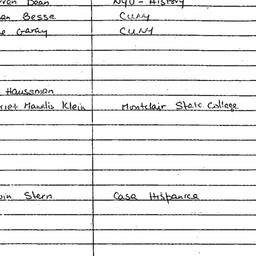 rren Dean NYU - History
an Besse CUNY
e Garay CUNY
Haussman
riet Manelis Klein Montclair State College
in Stern Casa Hispanica